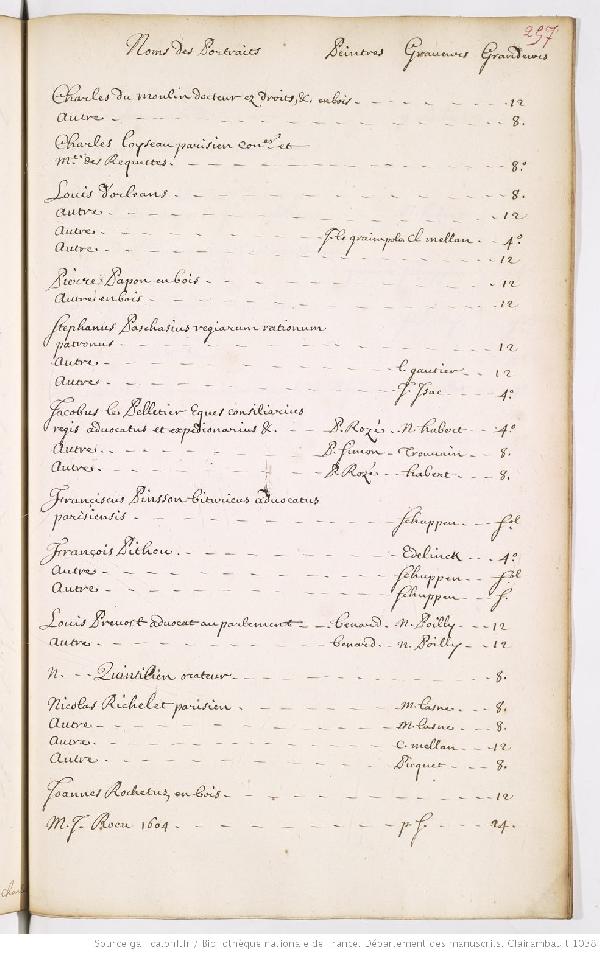 297
Noms des Portraits Peintres Graveurs Grandeurs
Charles du moulin docteur ez droits, &. en bois - 12
Autre - 8.
Charles Loyseau parisien con.er et
M.e des Requettes. - 8.o
Louis d'orleans - 8.
Autre - 12
Autre - J. le grain pole Cl. mellan - 4.o
Autre - 12
Pierre Papon en bois - 12
Autre en bois - 12
Stephanus Paschasius regiarum rationum
patronus - 12
Autre - l. gautier - 12
Autre - J. Isac - 4.o
Jacobus le Pelletier Eques consiliarius
regis advocatus et expedionarius &. - P. Rozé - N. habert - 4.o
Autre - P. Simon - Trouvain - 8.
Autre - P. Rozé - habert - 8.
Franciscus Pinsson bituricus advocatus
parisiensis - Schuppen - fol
François Pithou - Edelinck - 4.o
Autre - Schuppen - fol
Autre - Schuppen - f.
Louis Prevost advocat au parlement - benard - N. Poilly - 12
Autre - benard - n. Poilly - 12
N. - Quinsilien orateur - 8.
Nicolas Richelet parisien - M. Lasne - 8.
Autre - M. Lasne - 8.
Autre - C. mellan - 12
Autre - Picquet - 8.
Joannes Rochetus, en bois - 12
M. J. Roeu 1604 - p. f. - 24.
Source gallica.bnf.fr / Bibliothèque nationale de France. Département des manuscrits. Clairambault 1038